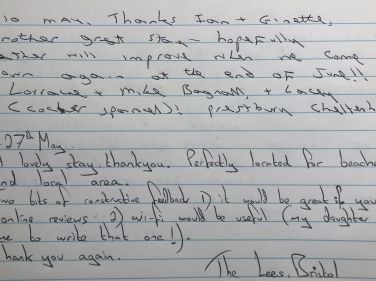 10 May. Thanks Ian + Ginette,
nother great stay - hopefully
ather will improve when we come
own again at the end of June!!
Lorraine + Mike Bagnall, + Lacey
(cocker spaniel)! Prestbury Cheltenh
27th May
lovely stay, thankyou. Perfectly located for beache
nd local area.
wo bits of constructive feedback 1) it would be great if you
online reviews 2) wi-fi would be useful (my daughter
me to write that one!).
hank you again.
The Lees, Bristol